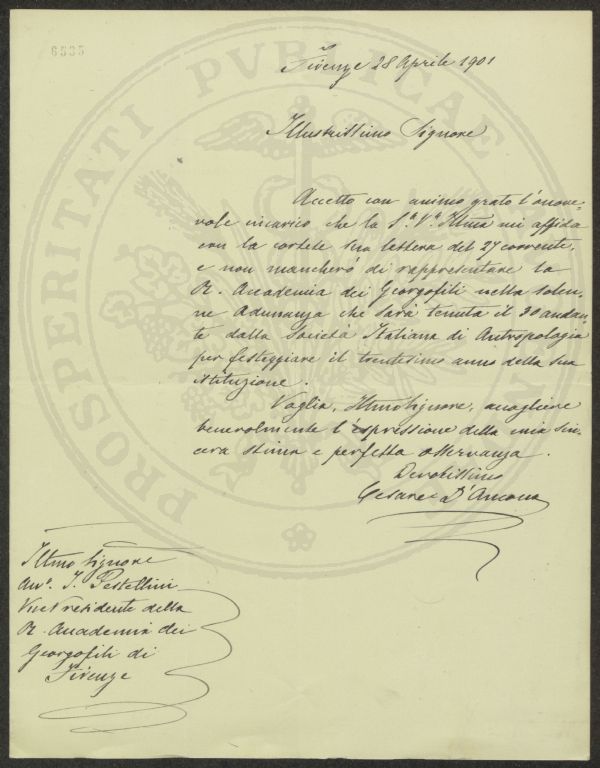 6335
PROSPERITATI PVBLICAE
Firenze 28 Aprile 1901
Illustrissimo Signore
Accetto con animo grato l'onore-
vole incarico che la S.ª V.ª Illma mi affida
con la cortese sua lettera del 27 corrente,
e non mancherò di rappresentare la
R. Accademia dei Georgofili nella solen-
ne Adunanza che sarà tenuta il 30 andan-
te dalla Società Italiana di Antropologia
per festeggiare il trentesimo anno della sua
istituzione.
Voglia, Illmo Signore, accogliere
benevolmente l'espressione della mia sin-
cera stima e perfetta osservanza.
Devotissimo
Cesare D'Ancona
Illmo Signore
Avv. I. Pestellini
Vice Presidente della
R. Accademia dei
Georgofili di
Firenze